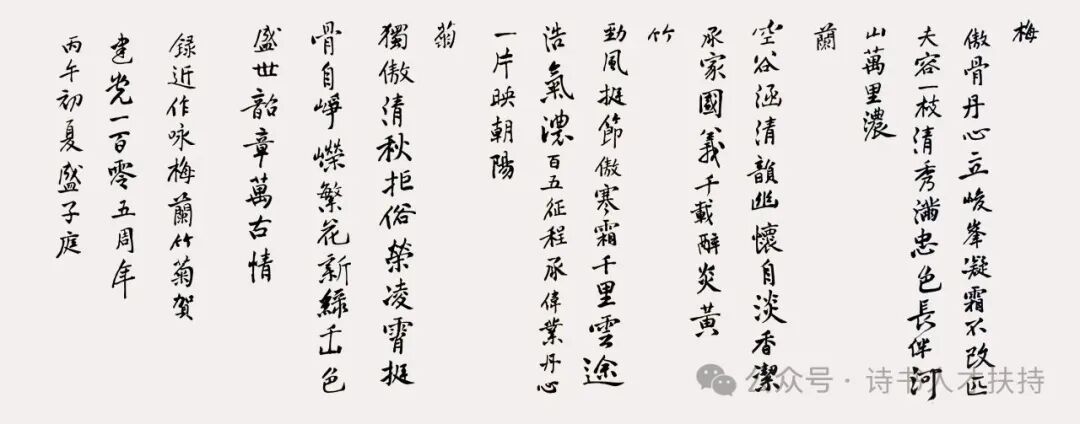 梅
傲骨丹心立峻峯凝霜不改匹
夫容一枝清秀滿忠色長伴河
山萬里濃
蘭
空谷涵清韻幽懷自淡香潔
承家國義千載醉炎黃
竹
勁風挺節傲寒霜千里雲途
浩氣濃百五征程承偉業丹心
一片映朝陽
菊
獨傲清秋拒俗榮凌霄挺
骨自崢嶸繁花新綠千山色
盛世韶章萬古情
録近作咏梅蘭竹菊賀
建党一百零五周年
丙午初夏盛子庭
公众号·诗书人才扶持